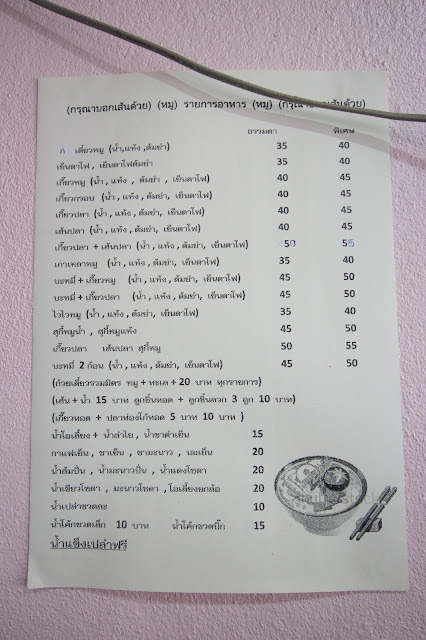 (กรุณาบอกเส้นด้วย) (หมู) รายการอาหาร (หมู) (กรุณา เส้นด้วย)
ธรรมดา พิเศษ
ก เตี๋ยวหมู (น้ำ,แห้ง,ต้มยำ) 35 40
เย็นตาโฟ , เย็นตาโฟต้มยำ 35 40
เกี๊ยวหมู (น้ำ , แห้ง , ต้มยำ , เย็นตาโฟ) 40 45
เกี๊ยวกรอบ (น้ำ , แห้ง, ต้มยำ, เย็นตาโฟ) 40 45
เกี๊ยวปลา (น้ำ , แห้ง, ต้มยำ, เย็นตาโฟ) 40 45
เส้นปลา (น้ำ , แห้ง, ต้มยำ, เย็นตาโฟ) 40 45
เกี๊ยวปลา + เส้นปลา (น้ำ , แห้ง, ต้มยำ, เย็นตาโฟ) 50 55
เกาเหลาหมู (น้ำ , แห้ง, ต้มยำ, เย็นตาโฟ) 35 40
บะหมี่ + เกี๊ยวหมู (น้ำ , แห้ง, ต้มยำ, เย็นตาโฟ) 45 50
บะหมี่ + เกี๊ยวปลา (น้ำ , แห้ง, ต้มยำ, เย็นตาโฟ) 45 50
ไวไวหมู (น้ำ, แห้ง, ต้มยำ, เย็นตาโฟ) 35 40
สุกี้หมูน้ำ , สุกี้หมูแห้ง 45 50
เกี๊ยวปลา เส้นปลา สุกี้หมู 50 55
บะหมี่ 2 ก้อน (น้ำ , แห้ง, ต้มยำ, เย็นตาโฟ) 45 50
(ก๋วยเตี๋ยวรวมมิตร หมู + ทะเล + 20 บาท ทุกรายการ)
(เส้น + น้ำ 15 บาท ลูกชิ้นทอด + ลูกชิ้นลวก 3 ลูก 10 บาท)
(เกี๊ยวทอด + ปลาท่องโก๋ทอด 5 บาท 10 บาท )
น้ำโอเลี้ยง + น้ำลำไย , น้ำชาดำเย็น 15
กาแฟเย็น , ชาเย็น , ชามะนาว , นมเย็น 20
น้ำส้มปั่น , น้ำมะนาวปั่น , น้ำแดงโซดา 20
น้ำเขียวโซดา , มะนาวโซดา , โอเลี้ยงยกล้อ 20
น้ำเปล่าขวดละ 10
น้ำโค้กขวดเล็ก 10 บาท น้ำโค้กขวดบิ๊ก 15
น้ำแข็งเปล่าฟรี